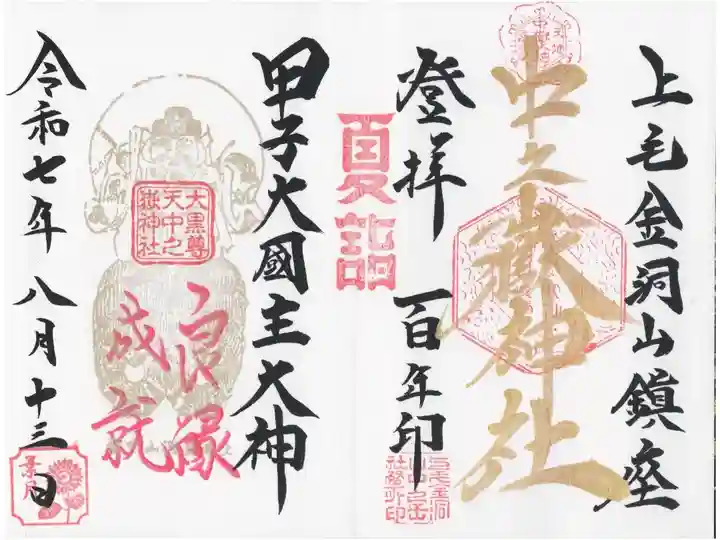 上毛金洞山鎮座
中之嶽神社
登拝 百年印
夏詣
甲子大國主大神
大黒尊
天中之
嶽神社
良縁
成就
令和七年八月十三日